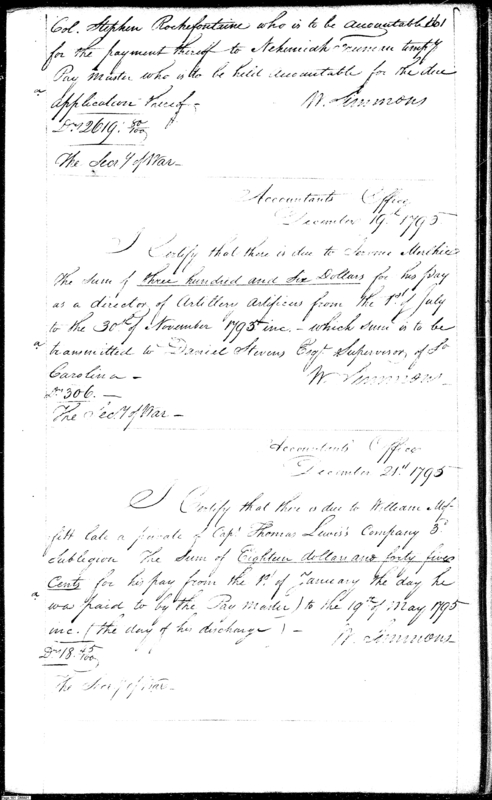 Col. Stephen Rochefontaine who is to be accountable 261
for the payment thereof to Nehemiah Freeman tempy
Pay Master who is to be held accountable for the due
application thereof.
W. Simmons
Drs 2619. 80/100
The Secy of War
Accountants Office
December 19th 1795
I Certify that there is due to Jerome
The Sum of three hundred and six Dollars for his pay
as a director of Artillery Artificers from the 1st of July
to the 30th of November 1795 inc. – which sum is to be
transmitted to Daniel Stevens Esqr Supervisor, of So
Carolina –
W. Simmons
Drs 306. –
The Secy of War –
Accountants Office
December 21st 1795
I Certify that there is due to William Mof-
fitt late a private of Capt Thomas Lewis's Company 3d
Sublegion The Sum of Eighteen dollars and forty five
Cents for his pay from the 1st of January (the day he
was paid to by the Pay Master) to the 19th of May 1795
inc. (the day of his discharge) –
W. Simmons
Drs 18. 45/100
The Secy of War –